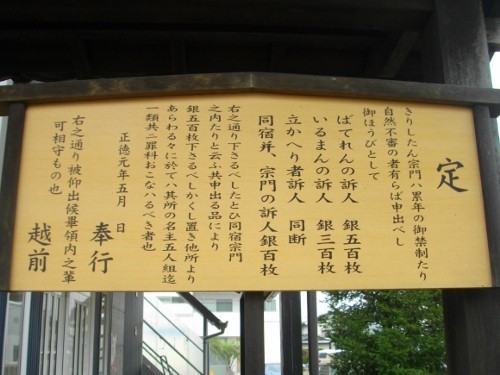 定
きりしたん宗門ハ累年の御禁制たり
自然不審の者有らば申出べし
御ほうびとして
ばてれんの訴人 銀五百枚
いるまんの訴人 銀三百枚
立かへり者訴人 同断
同宿并、宗門の訴人銀百枚
右之通り下さるべしたとひ同宿宗門
之内たりと云ふ共申出る品により
銀五百枚下さるべしかくし置き他所より
あらわるゝに於てハ其所の名主五人組迄
一類共ニ罪科おこなハるべき者也
正徳元年五月 日 奉行
右之通り被仰出候畢領内之輩
可相守もの也 越前